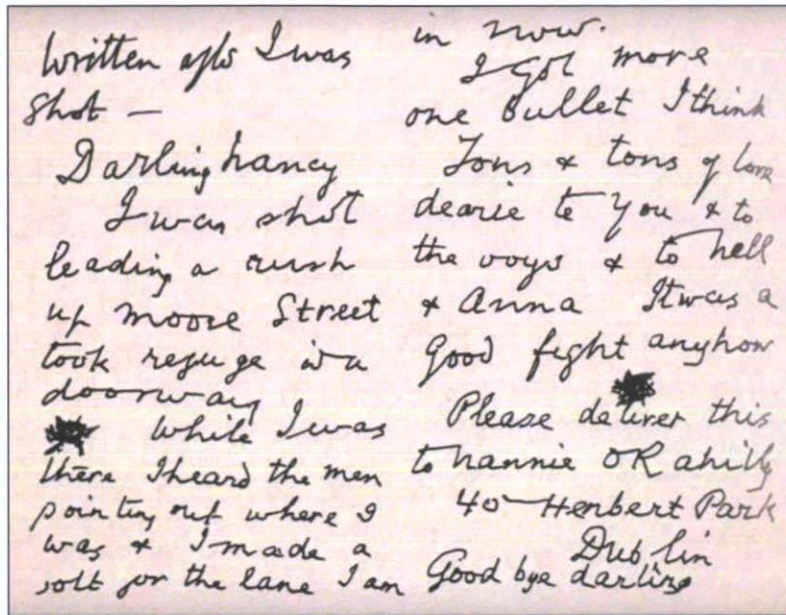 Written after I was
shot —
Darling Nancy
I was shot
leading a rush
up Moore Street
took refuge in a
doorway
While I was
there I heard the men
pointing out where I
was & I made a
bolt for the lane I am
in now.
I got more
one bullet I think
Tons & tons of love
dearie to you & to
the boys & to Nell
& Anna It was a
Good fight anyhow
Please deliver this
to Nannie O'Rahilly
40 Herbert Park
Dublin
Good bye darling